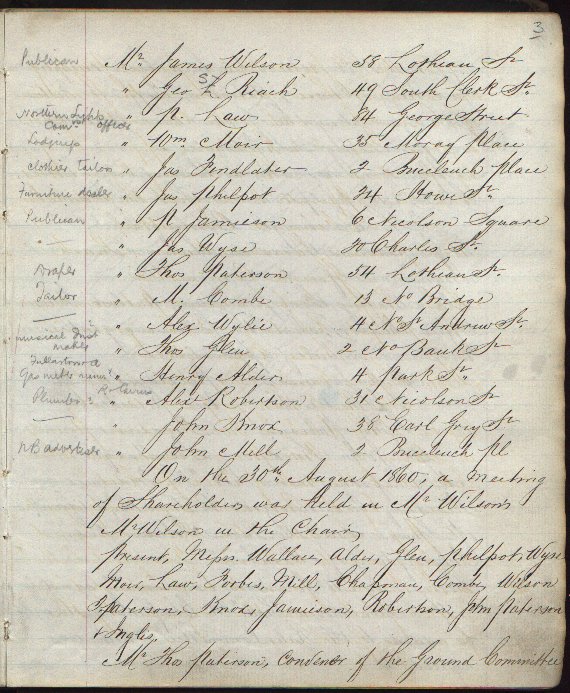 3
Publican Mr. James Wilson 38 Lothian St
" Geo St L Reach 49 South Clerk St.
Northern Lights Comrs office " P. Law 84 George Street
Lodgings " Wm. Moir 35 Moray Place
Clothier Tailor " Jas Findlater 2 Buccleuch Place
Furniture dealer " Jas Philpot 24 Howe St.
Publican " P. Jamieson 6 Nicolson Square
— " Jas Wyse 20 Charles St.
Draper " Thos Paterson 54 Lothian St.
Tailor " M. Combe 13 No Bridge
— " Alex Wylie 4 No St Andrew St.
musical Inst maker " Thos Glen 2 No Bank St
Gas meter " Henry Alder 4 Park St.
Plumber? " Alex Robertson 31 Nicolson St
— " John Knox 38 Earl Grey St
NB advertiser " John Mill 2 Buccleuch Pl
On the 30th. August 1860, a meeting
of Shareholders was held in Mr Wilson's
Mr Wilson in the Chair,
Present, Messrs. Wallace, Alder, Glen, Philpot, Wyse
Moir, Law, Forbes, Mill, Chapman, Combe, Wilson
T, Paterson, Knox, Jamieson, Robertson, John Paterson
& Inglis,
Mr Thos Paterson, Convener of the Ground Committee